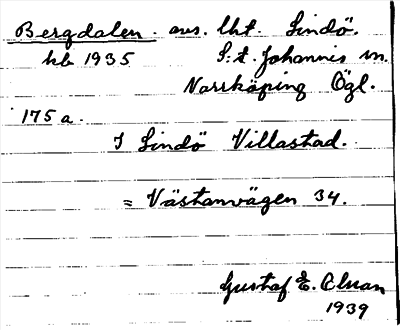 Bergdalen. avs. lht. Lindö.
kb 1935 S:t. Johannis sn.
Norrköping Ögl.
175 a.
I Lindö Villastad.
= Västanvägen 34.
Gustaf E. Olsson
1939